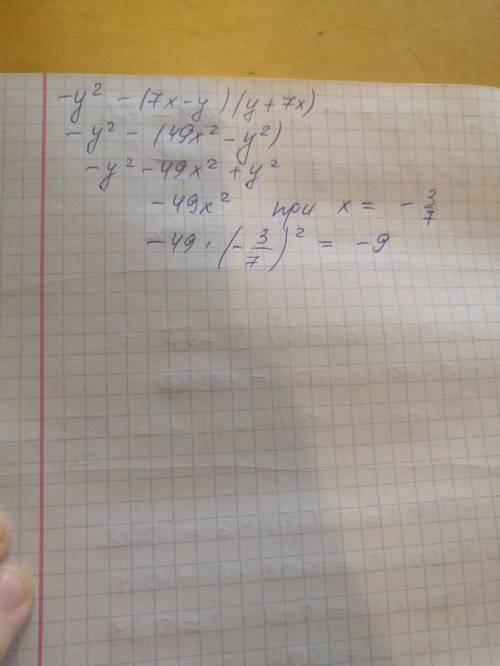 -y² - (7x-y)(y+7x)
-y² - (49x² - y²)
-y² - 49x² + y²
-49x² при x = -3/7
-49 · (-3/7)² = -9